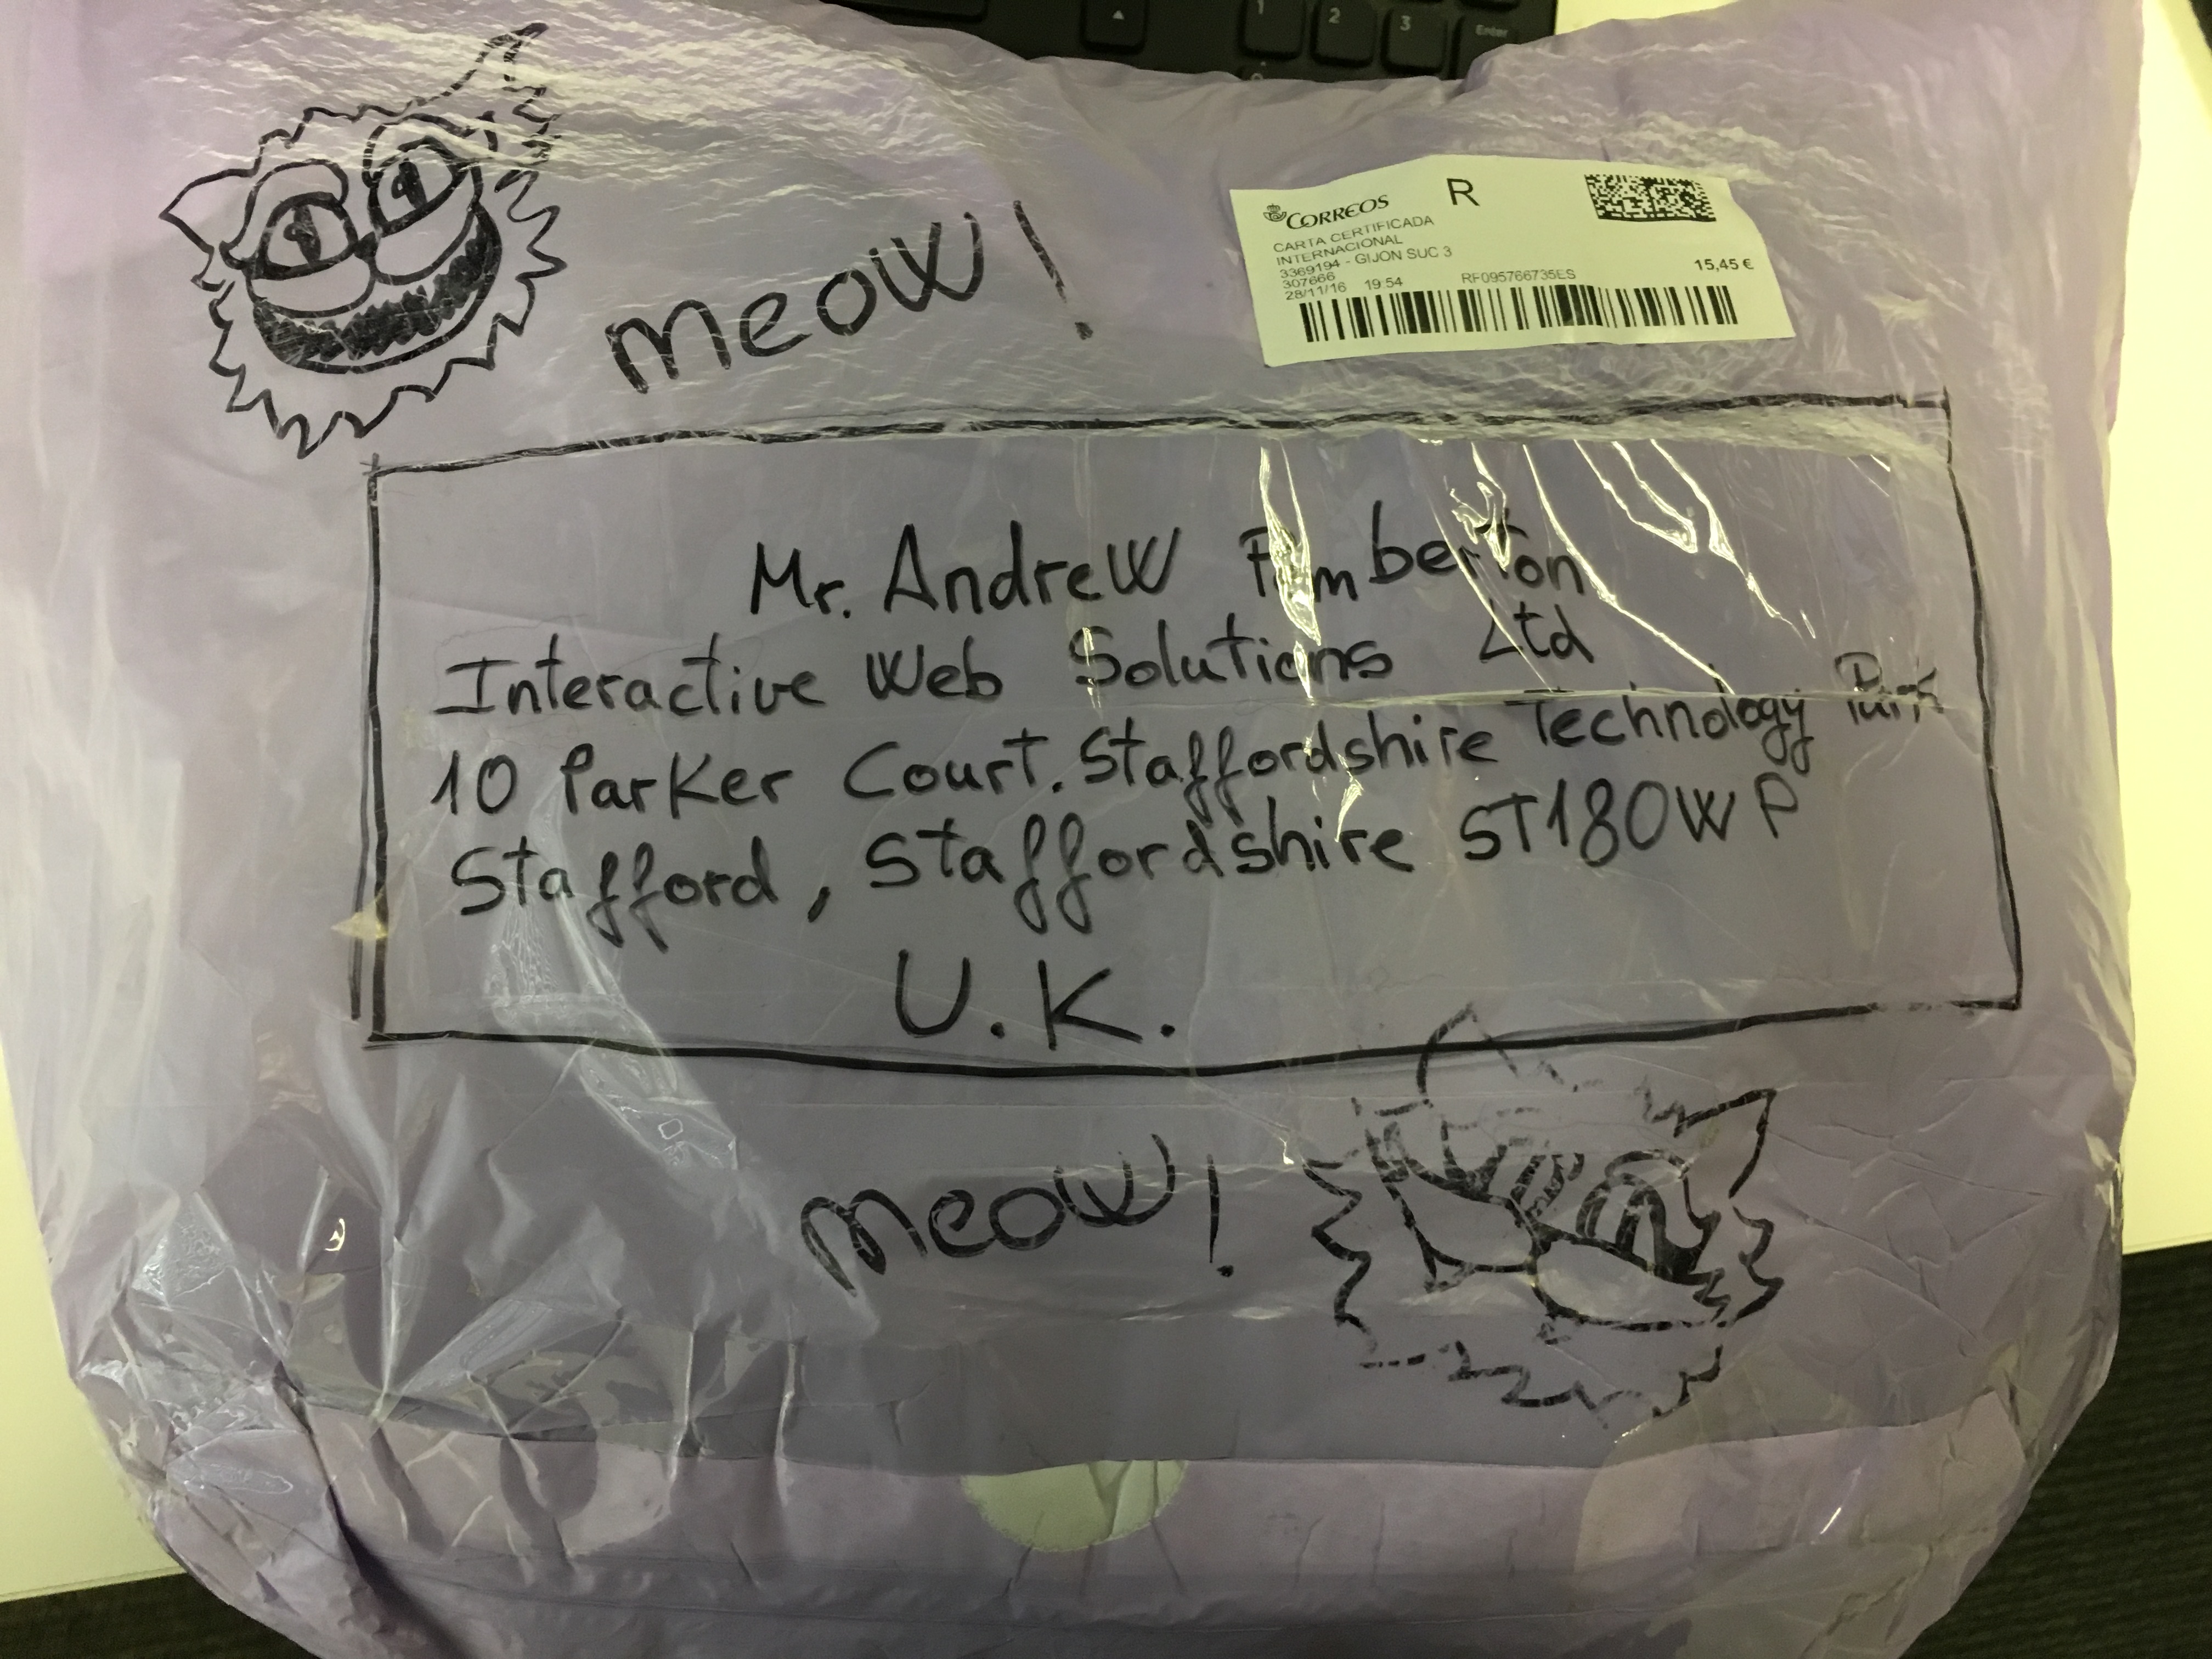 1 2 3 Enter
meow!
CORREOS R
CARTA CERTIFICADA
INTERNACIONAL
3369194 - GIJON SUC 3
307666
28/11/16 19:54 RF095766735ES 15,45 €
Mr. Andrew
Interactive Web Solutions Ltd
10 Parker Court. Staffordshire Technology Park
Stafford, Staffordshire ST180WP
U.K.
meow!